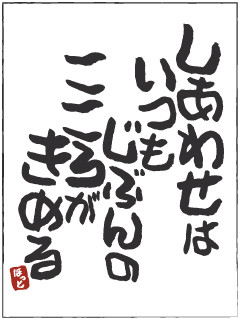 しあわせは
いつも
じぶんの
こころが
きめる
ほっと